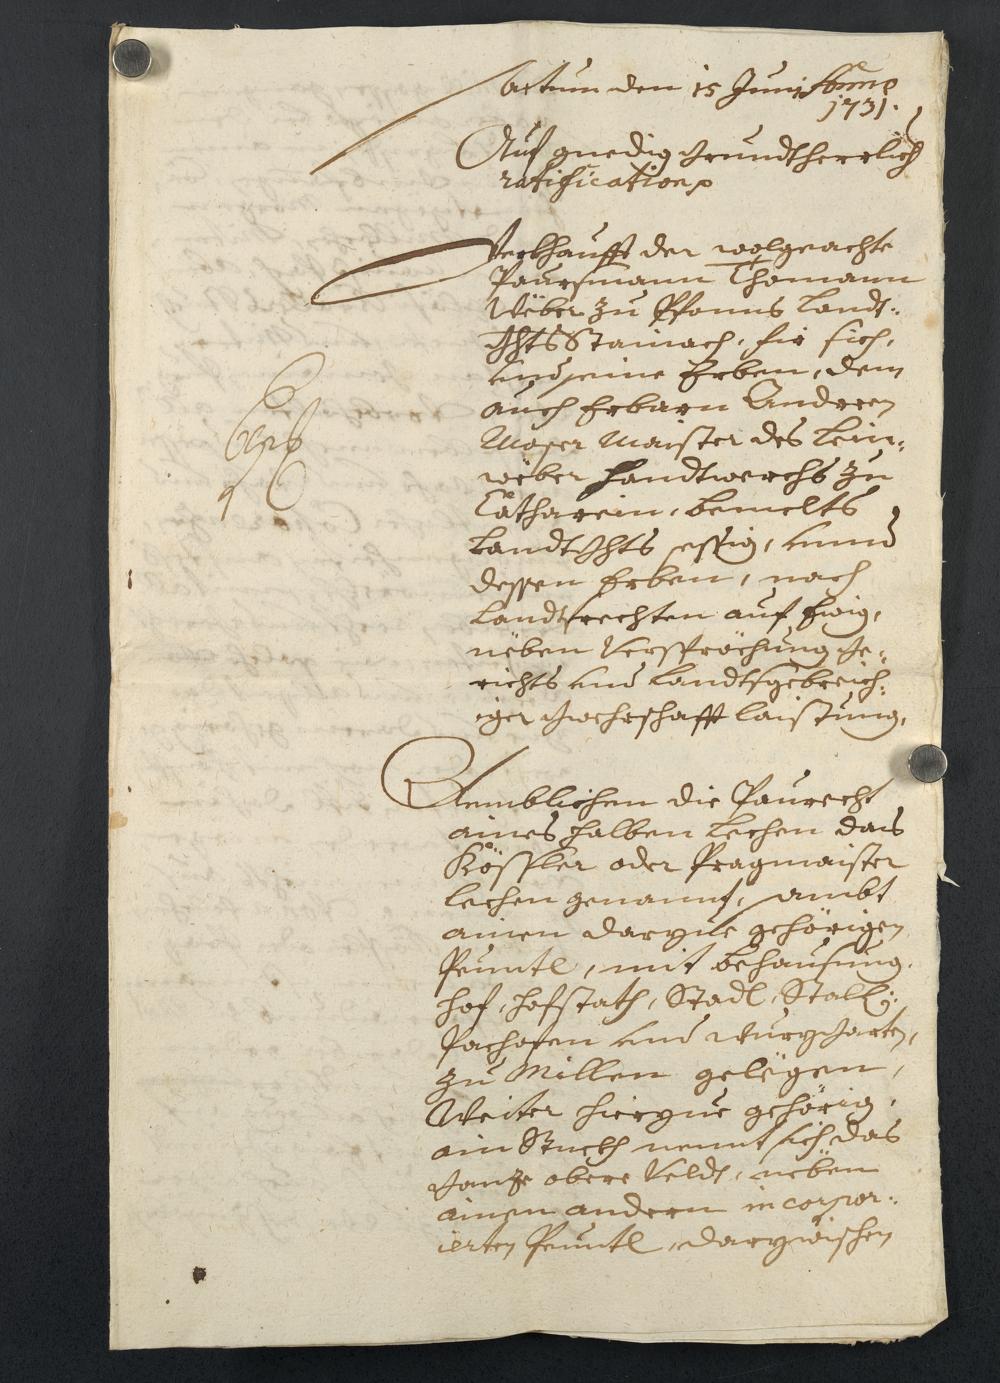 Actum den 15 Junij Anno
1731.
Auf gnedig Grundtherrlich
ratification
Verkhaufft der wolgeachte
Paursmann Thomann
Wëber zu Pfonns Landt-
Ghts Stainach, fir sich,
und seine Erben, dem
auch Erbarn Andreen
Moser Maister des Lein-
wëber Handtwerchs zu
Catharein, bemelts
Landt Ghts sessig, unnd
dessen Erben, nach
Landtsrechten auf Ewig,
nëben Verspröchung Ge-
richts und Landtsgebreich-
iger Gwehrschafft laistung,
Nemblichen die Paurecht
aines halben Lechen das
Kössler oder Pragmaister
lechen genannt, sambt
ainen darzue gehörigen
Peuntl, mit Behausung,
Hof, Hofstath, Stadl, Stall,
Pachofen und Wurzgarten,
zu Millen gelëgen,
Weiter hierzue gehörig,
ain Stuckh nennt sich das
Ganze obere Veldt, nëben
ainen andern incorpor-
ierten Peuntl, darzwischen